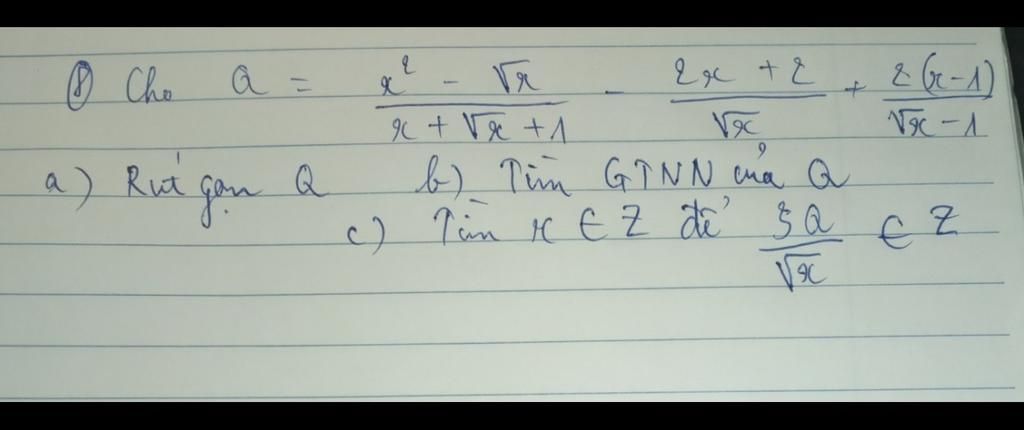 ⑧ Cho Q = \frac{x² - √x}{x + √x + 1} - \frac{2x + 2}{√x} + \frac{2(x-1)}{√x - 1}
a) Rút gọn Q b) Tìm GTNN của Q
c) Tìm x ∈ Z để \frac{3Q}{√x} ∈ Z